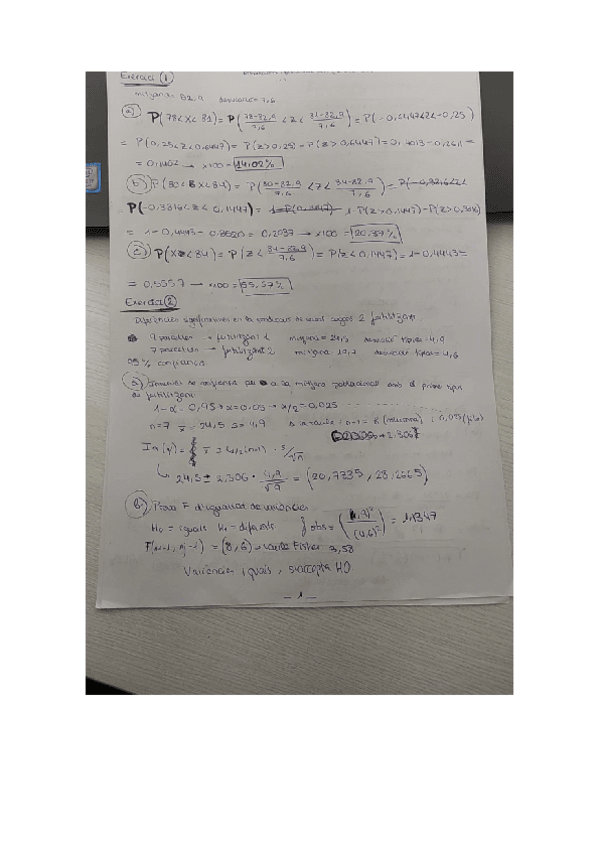 Exercici 1
mitjana = 82,9 desviació = 7,6
a) P(78<X<81) = P(78-82,9/7,6 <Z< 81-82,9/7,6) = P(-0,6447<Z<-0,25)
= P(0,25<Z<0,6447) = P(Z>0,25) - P(Z>0,6447) = 0,4013-0,2611 =
= 0,1402 → x100 = 14,02%
b) P(80<X<84) = P(80-82,9/7,6 <Z< 84-82,9/7,6) =
P(-0,3816<Z<0,1447) = 1-P(Z>0,1447)-P(Z>0,3816)
= 1-0,4443-0,3520 = 0,2037 → x100 = 20,37%
c) P(X<84) = P(Z< 84-82,9/7,6) = P(Z<0,1447) = 1-0,4443 =
= 0,5557 → x100 = 55,57%
Exercici 2
Diferències significatives en la producció de segons 2 fertilitzants
9 parcel·les → fertilitzant 1 mitjana = 24,5 desviació típica = 4,9
7 parcel·les → fertilitzant 2 mitjana 19,7 desviació típica = 4,6
95% confiança
a) Interval de confiança per a la mitjana poblacional amb el primer tipus
de fertilitzant
1-α = 0,95 → α = 0,05 → α/2 = 0,025
n=7 x̄ = 24,5 s = 4,9 n-1 = 8 (columna) i 0,025 (fila)
2,306
x̄ ± tα/2(n-1) · s/√n
24,5 ± 2,306 · 4,9/√9 = (20,7335, 28,2665)
b) Prova F d'igualtat de variàncies
H0 = iguals H1 = diferents f obs = ((4,9)²/(4,6)²) = 1,1347
= (8,6) → Fisher 3,58
Variàncies iguals, s'accepta H0
— 1 —